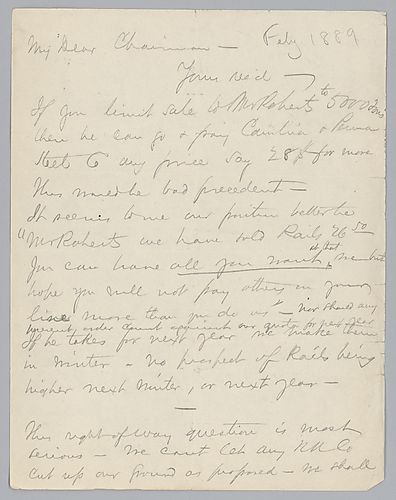 My Dear Chairman — Feby 1889
Yours rec'd —
If you limit sale to Mr Roberts to 5000 tons
then he can go & pay Cambria & Penna
Steel Co any price say 28$ for more
This would be bad precedent —
It seems to me our position better be
"Mr Roberts we have sold Rails 26 50
You can have all you want at that, we but
hope you will not pay others in your
line more than you do us" — nor should any
order count against our quota for next year
If he takes for next year we make them
in Winter — no prospect of Rails being
higher next Winter, or next year —
—
This right of way question is most
serious — We cant let any RR Co
cut up our Ground as proposed — we shall